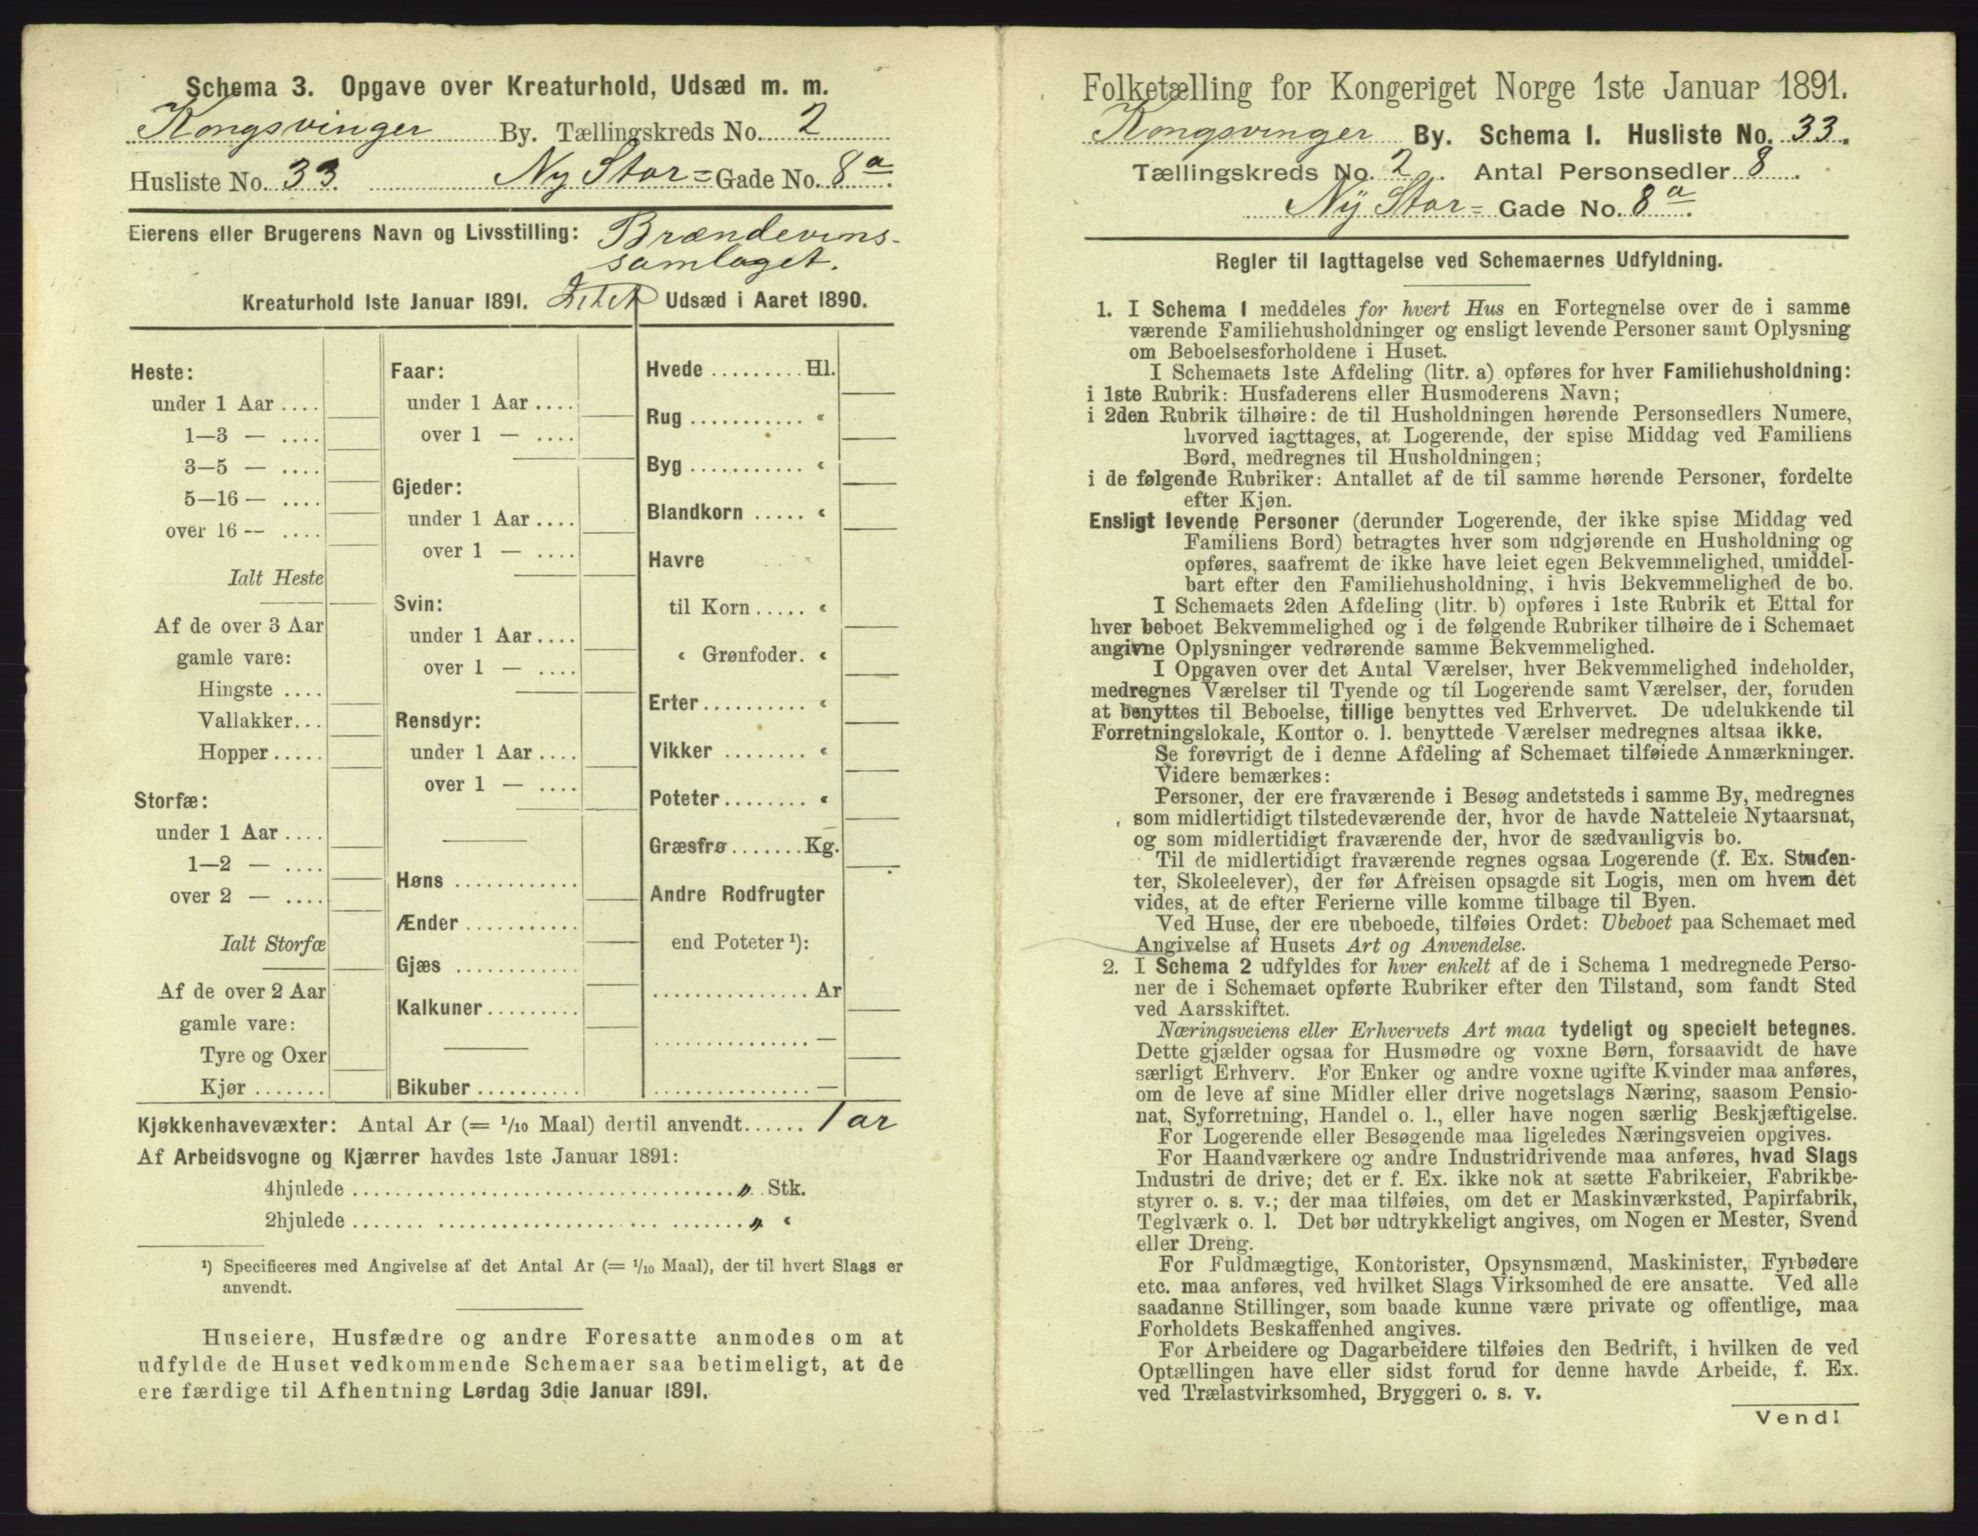 Schema 3. Opgave over Kreaturhold, Udsæd m. m.
Kongsvinger By. Tællingskreds No. 2
Husliste No. 33. Ny Stor= Gade No. 8a.
Eierens eller Brugerens Navn og Livsstilling: Brændevins-
samlaget.
Kreaturhold 1ste Januar 1891. Udsæd i Aaret 1890.
Heste:
under 1 Aar ....
1—3 — ....
3—5 — ....
5—16 — ....
over 16 — ....
Ialt Heste
Af de over 3 Aar
gamle vare:
Hingste ....
Vallakker...
Hopper.....
Storfæ:
under 1 Aar ....
1—2 — ....
over 2 — ....
Ialt Storfæ
Af de over 2 Aar
gamle vare:
Tyre og Oxer
Kjør .......
Faar:
under 1 Aar ....
over 1 — ....
Gjeder:
under 1 Aar ....
over 1 — ....
Svin:
under 1 Aar ....
over 1 — ....
Rensdyr:
under 1 Aar ....
over 1 — ....
Høns ...........
Ænder ...........
Gjæs ...........
Kalkuner.........
Bikuber..........
Hvede ......... Hl.
Rug ........... «
Byg ........... «
Blandkorn ..... «
Havre
til Korn ..... «
« Grønfoder. «
Erter.......... «
Vikker ........ «
Poteter........ «
Græsfrø.......Kg.
Andre Rodfrugter
end Poteter ¹):
............... Ar
............... —
............... —
Kjøkkenhavevæxter: Antal Ar (= 1/10 Maal) dertil anvendt...... 1 ar
Af Arbeidsvogne og Kjærrer havdes 1ste Januar 1891:
4hjulede ..................................... „ Stk.
2hjulede ..................................... „ «
¹) Specificeres med Angivelse af det Antal Ar (= 1/10 Maal), der til hvert Slags er
anvendt.
Huseiere, Husfædre og andre Foresatte anmodes om at
udfylde de Huset vedkommende Schemaer saa betimeligt, at de
ere færdige til Afhentning Lørdag 3die Januar 1891.
Folketælling for Kongeriget Norge 1ste Januar 1891.
Kongsvinger By. Schema I. Husliste No. 33.
Tællingskreds No. 2. Antal Personsedler 8.
Ny Stor= Gade No. 8a.
Regler til Iagttagelse ved Schemaernes Udfyldning.
1. I Schema I meddeles for hvert Hus en Fortegnelse over de i samme
værende Familiehusholdninger og ensligt levende Personer samt Oplysning
om Beboelsesforholdene i Huset.
I Schemaets 1ste Afdeling (litr. a) opføres for hver Familiehusholdning:
i 1ste Rubrik: Husfaderens eller Husmoderens Navn;
i 2den Rubrik tilhøire: de til Husholdningen hørende Personsedlers Numere,
hvorved iagttages, at Logerende, der spise Middag ved Familiens
Bord, medregnes til Husholdningen;
i de følgende Rubriker: Antallet af de til samme hørende Personer, fordelte
efter Kjøn.
Ensligt levende Personer (derunder Logerende, der ikke spise Middag ved
Familiens Bord) betragtes hver som udgjørende en Husholdning og
opføres, saafremt de ikke have leiet egen Bekvemmelighed, umiddel-
bart efter den Familiehusholdning, i hvis Bekvemmelighed de bo.
I Schemaets 2den Afdeling (litr. b) opføres i 1ste Rubrik et Ettal for
hver beboet Bekvemmelighed og i de følgende Rubriker tilhøire de i Schemaet
angivne Oplysninger vedrørende samme Bekvemmelighed.
I Opgaven over det Antal Værelser, hver Bekvemmelighed indeholder,
medregnes Værelser til Tyende og til Logerende samt Værelser, der, foruden
at benyttes til Beboelse, tillige benyttes ved Erhvervet. De udelukkende til
Forretningslokale, Kontor o. l. benyttede Værelser medregnes altsaa ikke.
Se forøvrigt de i denne Afdeling af Schemaet tilføiede Anmærkninger.
Videre bemærkes:
Personer, der ere fraværende i Besøg andetsteds i samme By, medregnes
som midlertidigt tilstedeværende der, hvor de havde Natteleie Nytaarsnat,
og som midlertidigt fraværende der, hvor de sædvanligvis bo.
Til de midlertidigt fraværende regnes ogsaa Logerende (f. Ex. Studen-
ter, Skoleelever), der før Afreisen opsagde sit Logis, men om hvem det
vides, at de efter Ferierne ville komme tilbage til Byen.
Ved Huse, der ere ubeboede, tilføies Ordet: Ubeboet paa Schemaet med
Angivelse af Husets Art og Anvendelse.
2. I Schema 2 udfyldes for hver enkelt af de i Schema 1 medregnede Perso-
ner de i Schemaet opførte Rubriker efter den Tilstand, som fandt Sted
ved Aarsskiftet.
Næringsveiens eller Erhvervets Art maa tydeligt og specielt betegnes.
Dette gjælder ogsaa for Husmødre og voxne Børn, forsaavidt de have
særligt Erhverv. For Enker og andre voxne ugifte Kvinder maa anføres,
om de leve af sine Midler eller drive nogetslags Næring, saasom Pensio-
nat, Syforretning, Handel o. l., eller have nogen særlig Beskjæftigelse.
For Logerende eller Besøgende maa ligeledes Næringsveien opgives.
For Haandværkere og andre Industridrivende maa anføres, hvad Slags
Industri de drive; det er f. Ex. ikke nok at sætte Fabrikeier, Fabrikbe-
styrer o. s. v.; der maa tilføies, om det er Maskinværksted, Papirfabrik,
Teglværk o. l. Det bør udtrykkeligt angives, om Nogen er Mester, Svend
eller Dreng.
For Fuldmægtige, Kontorister, Opsynsmænd, Maskinister, Fyrbødere
etc. maa anføres, ved hvilket Slags Virksomhed de ere ansatte. Ved alle
saadanne Stillinger, som baade kunne være private og offentlige, maa
Forholdets Beskaffenhed angives.
For Arbeidere og Dagarbeidere tilføies den Bedrift, i hvilken de ved
Optællingen have eller sidst forud for denne havde Arbeide, f. Ex.
ved Trælastvirksomhed, Bryggeri o. s. v.
Vend!